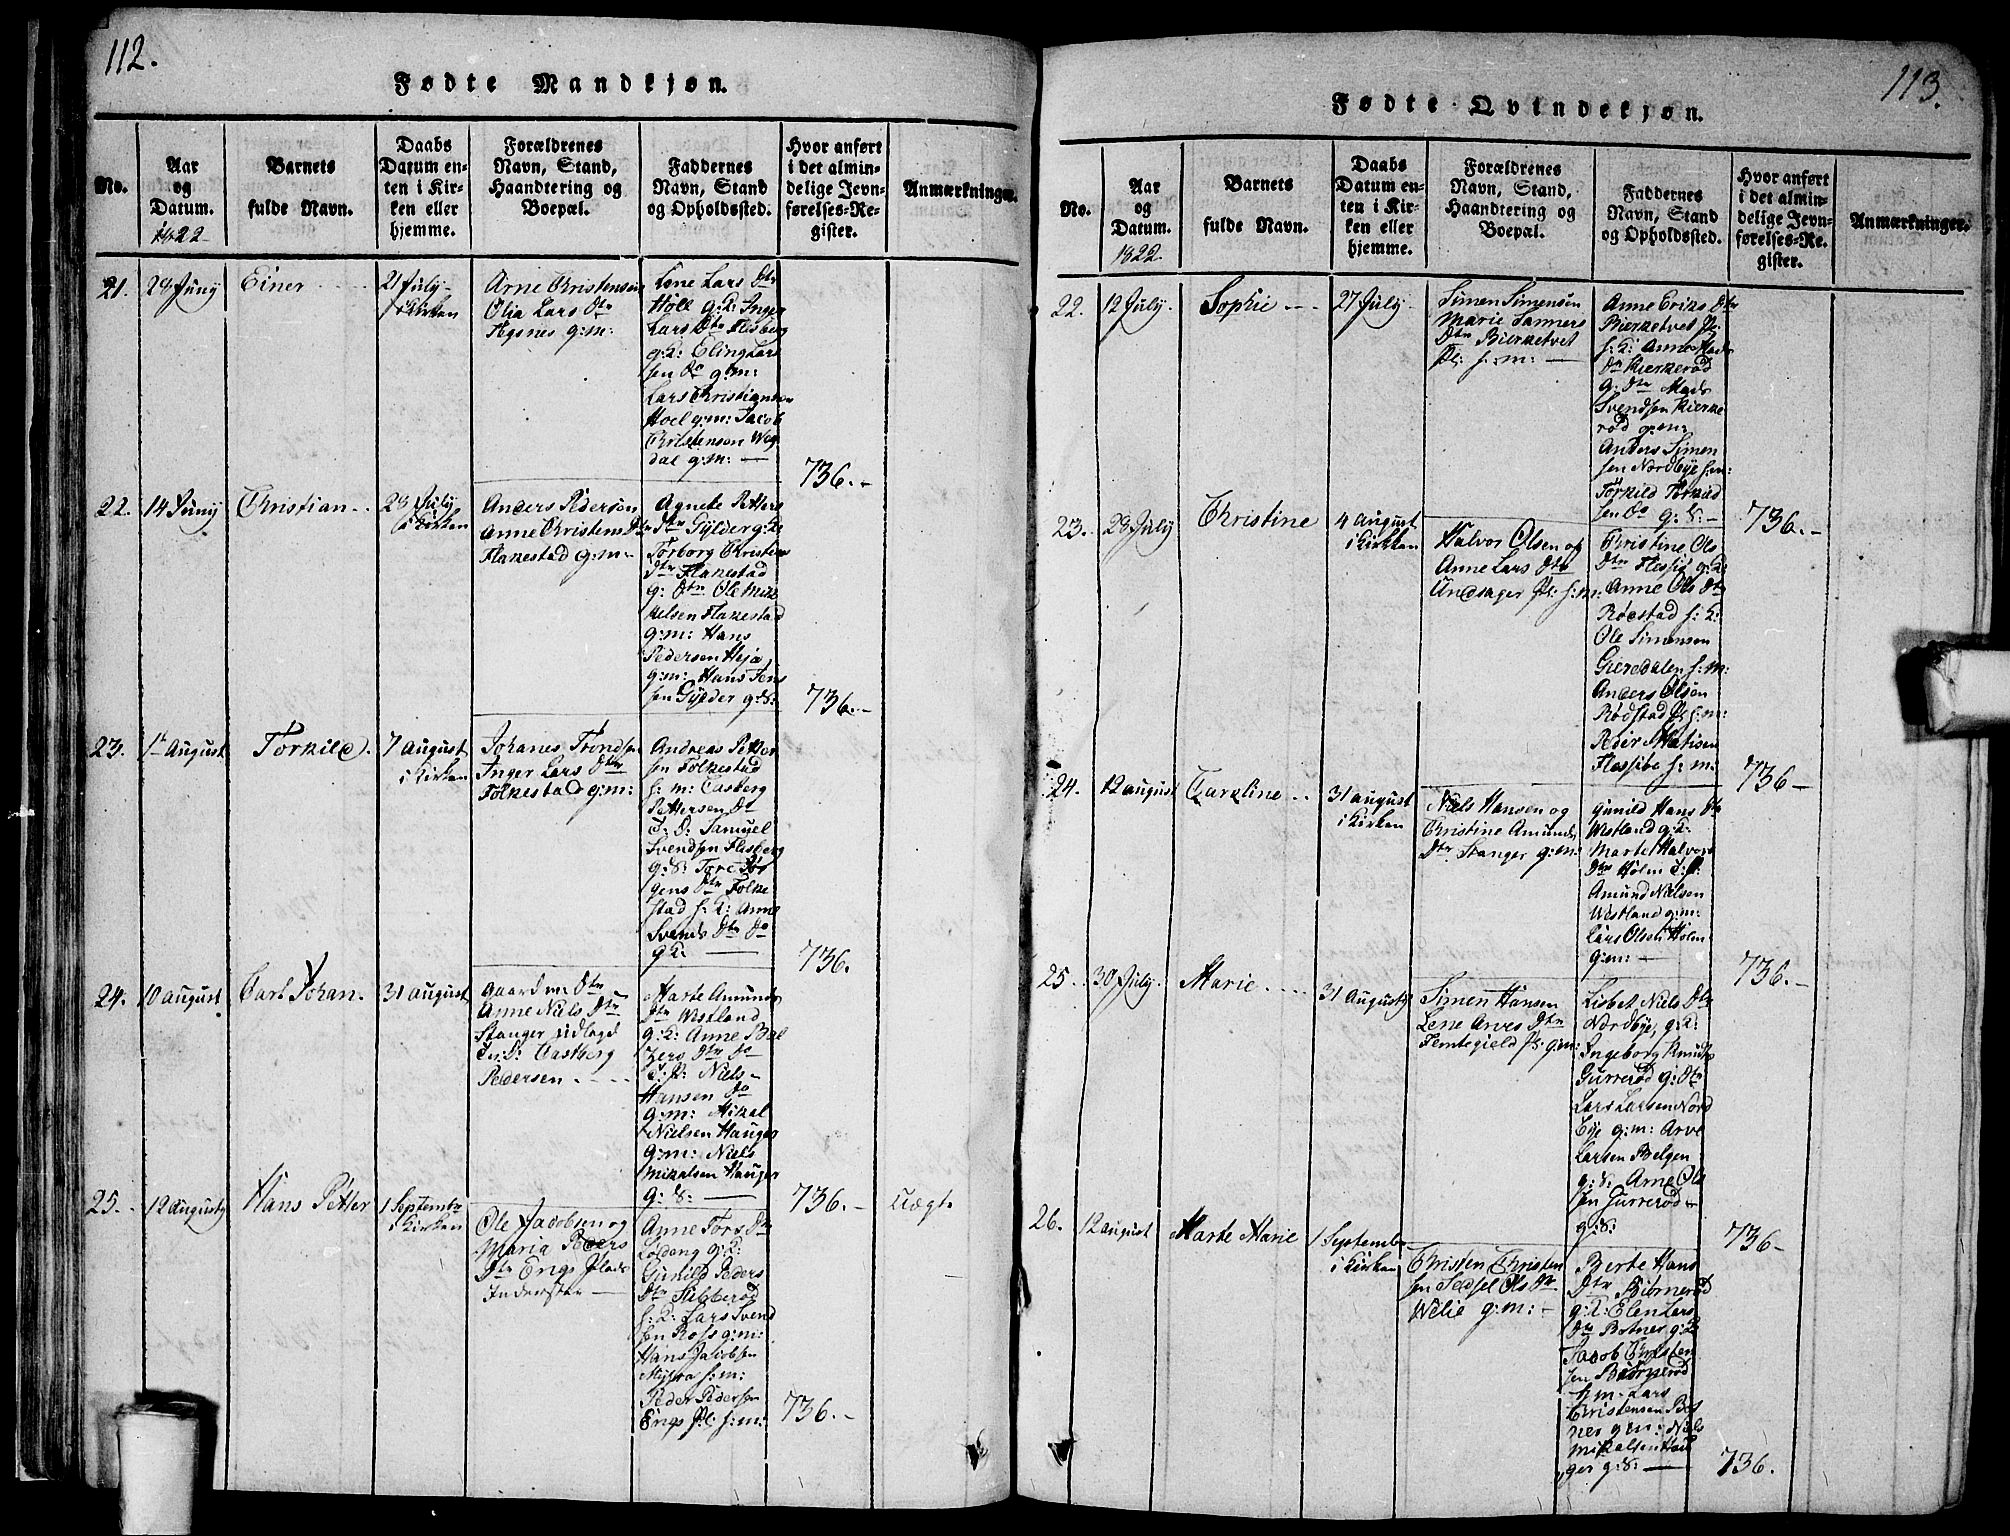 112.
Fødte Mandkjøn.
No.
Aar
og
Datum.
1822
Barnets
fulde Navn.
Daabs
Datum en-
ten i Kir-
ken eller
hjemme.
Forældrenes
Navn, Stand,
Haandtering og
Boepæl.
Faddernes
Navn, Stand
og Opholdssted.
Hvor anført
i det almin-
delige Jevn-
førelses-Re-
gister.
Anmærkninger.
21.
29 Juny
Einer
21 July
i Kirken
Arne Christensen
Olia Lars Dtr
g:m:
Lene Lars Dtr
Höll g:K: Inger
Lars Dtr Flisberg
g:K: Eling Lars
sen Do g:m:
Lars Christiansen
Hoel g:m: Jacob
Christensen Weg
dal g:m: —
736.-
22.
14 Juny
Christian
28 July
i Kirken
Anders Pedersen
Anne Christens Dtr
Flakestad g:m:
Agnete Petters
Dtr Gylder g:K:
Torborg Christians
Dtr Flakestad
g: Dtr Ole Mik
kelsen Flakestad
g:m: Hans
Pedersen Heja
g:m: Hans Jens
sen Gylder g:S:
736.-
23.
1te August
Torkild.
7 August
i Kirken
Johanes Trondsen
Inger Lars Dtr
Folkestad g:m:
Andreas Petter
sen Folkestad
f: m: Casberg
Pettersen Do
T: D: Samuel
Svendsen Flesberg
g:S: Tore Jör
gens Dtr Folke
stad f: K: Anne
Svends Dtr Do
g K: —
736.
24.
10 august
Carl Johan.
31 august
Anne Niels Dtr
Stanger udlagt
Castberg
Pedersen
Marte Amunds
Dtr Westland
g:K: Anne Bal
zers Dtr Do
T: P: Niels
Hansen Do
g:m: Mikal
Nielsen Hauger
g:m: Niels
Mikalsen Hauger
g: S: —
736.-
Uægt.
25.
12 August
Hans Petter
1 Septembr
i Kirken
Ole Jacobsen og
Maria Peders
Dtr Engs Plads
Inderster —
Anne Tors Dtr
g:K:
Gunild Peders
Dtr Sibberød
f: K: Lars Svend
sen Ross g:m:
Hans Jacobsen
f:m:
Peder Pedersen
Engs Pl: f:m:
736.-
113.
Fødte Qvindekjøn.
No.
Aar
og
Datum.
1822.
Barnets
fulde Navn.
Daabs
Datum en-
ten i Kir-
ken eller
hjemme.
Forældrenes
Navn, Stand,
Haandtering og
Boepæl.
Faddernes
Navn, Stand
og Opholdssted.
Hvor anført
i det almin-
delige Jevn-
førelses-Re-
gister.
Anmærkninger.
22.
12 July.
Sophie
27 July.
Simen Simensen
Marie Sanners
Dtr Bierketvet
Pl: f: m: —
Anne Eriks Dtr
Bierketvet Pl:
f: K: Anne Mads
Dtr Kierkerød
g: Dtr Mads
Svendsen Kierke
rød g:m:
Anders Simen
sen Nordbye f:m:
Torkild Torkild
sen Do g: S: -
736.-
23.
28 July
Christine
4 August
i Kirken
Halvor Olsen og
Anne Lars Dtr
Undsager Pl: f:m:
Christine Ols
Dtr g:K:
Anne Ols Dtr
Röestad f: K:
Ole Simensen
Gieredalen f:m:
Anders Olsen
Rödstad Pl f:m:
Peder Matisen
f: m:
736-
24.
12 august
Caroline
31 august
i Kirken
Niels Hansen og
Christine Amunds
Dtr Stanger g:m:
Gunild Hans Dtr
Westland g:K:
Marte Halvors
Dtr Holm
Amund Nielsen
Westland g:m:
Lars Olsen Holm
g:m: —
736.-
25.
30 July.
Marie
31 August
Simen Hansen
Lene Arves Dtr
Femtegield Pl: g:m:
Lisbet Niels Dtr
Nordbye, g:K:
Ingeborg Knuds
Gurrerød g: Dtr
Lars Larsen Nord
bye g:m: Arve
Larsen Belgen
g:S: Arne Ols
sen Gurrerød
g:S:
736-
26.
12 august
Marte Marie
1 Septembr
i Kirken
Christen Christen
sen Sedsel Ols Dtr
Welie g:m: -
Berte Hans
Dtr Biörnerød
g:K: Elen Lars
Dtr Botner g:K
Jacob Christen
sen Biörnerød
f:m- Lars
Christensen Bot
ner g:m: Niels
Mikalsen Hau
ger g:S: —
736.